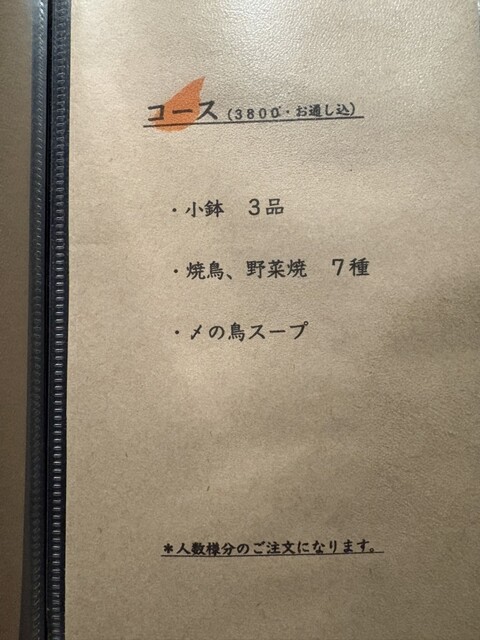 コース（3800・お通し込）
・小鉢　３品
・焼鳥、野菜焼　７種
・〆の鳥スープ
＊人数様分のご注文になります。